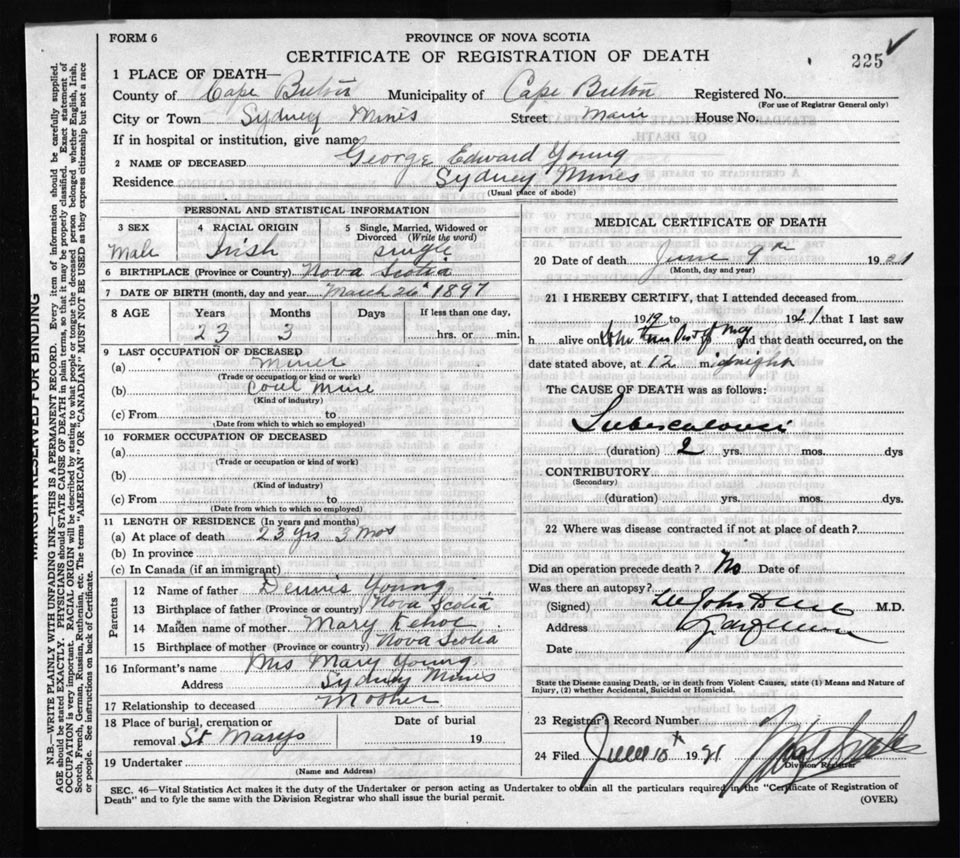 FORM 6
PROVINCE OF NOVA SCOTIA
CERTIFICATE OF REGISTRATION OF DEATH
225
1 PLACE OF DEATH—
County of Cape Breton Municipality of Cape Breton Registered No.
(For use of Registrar General only)
City or Town Sydney Mines Street Main House No.
If in hospital or institution, give name
2 NAME OF DECEASED George Edward Young
Residence Sydney Mines
(Usual place of abode)
PERSONAL AND STATISTICAL INFORMATION
3 SEX Male
4 RACIAL ORIGIN Irish
5 Single, Married, Widowed or Divorced (Write the word) single
6 BIRTHPLACE (Province or Country) Nova Scotia
7 DATE OF BIRTH (month, day and year) March 26 1897
8 AGE Years Months Days If less than one day,
23 3 hrs. or min.
9 LAST OCCUPATION OF DECEASED
(a) Miner
(Trade or occupation or kind or work)
(b) Coal Mine
(Kind of industry)
(c) From to
(Date from which to which so employed)
10 FORMER OCCUPATION OF DECEASED
(a)
(Trade or occupation or kind of work)
(b)
(Kind of industry)
(c) From to
(Date from which to which so employed)
11 LENGTH OF RESIDENCE (In years and months)
(a) At place of death 23 yrs 3 mos
(b) In province
(c) In Canada (if an immigrant)
Parents
12 Name of father Dennis Young
13 Birthplace of father (Province or country) Nova Scotia
14 Maiden name of mother Mary Kehoe
15 Birthplace of mother (Province or country) Nova Scotia
16 Informant's name Mrs Mary Young
Address Sydney Mines
17 Relationship to deceased Mother
18 Place of burial, cremation or Date of burial
removal St Marys 19
19 Undertaker
(Name and Address)
MEDICAL CERTIFICATE OF DEATH
20 Date of death June 9th 1921
(Month, day and year)
21 I HEREBY CERTIFY, that I attended deceased from
1919 to 1921 that I last saw
h alive on and that death occurred, on the
date stated above, at 12 midnight
The CAUSE OF DEATH was as follows:
Tuberculosis
(duration) 2 yrs. mos. dys
CONTRIBUTORY
(Secondary)
(duration) yrs. mos. dys.
22 Where was disease contracted if not at place of death?
Did an operation precede death? No Date of
Was there an autopsy?
(Signed) M.D.
Address
Date
State the Disease causing Death, or in death from Violent Causes, state (1) Means and Nature of
Injury, (2) whether Accidental, Suicidal or Homicidal.
23 Registrar's Record Number
24 Filed June 10th 1921
Division Registrar
SEC. 46—Vital Statistics Act makes it the duty of the Undertaker or person acting as Undertaker to obtain all the particulars required in the "Certificate of Registration of
Death" and to fyle the same with the Division Registrar who shall issue the burial permit.
(OVER)
MARGIN RESERVED FOR BINDING
N.B.—WRITE PLAINLY WITH UNFADING INK—THIS IS A PERMANENT RECORD. Every item of information should be carefully supplied.
AGE should be stated EXACTLY. PHYSICIANS should STATE CAUSE OF DEATH in plain terms, so that it may be properly classified. Exact statement of
OCCUPATION is very important. RACIAL ORIGIN will be described by stating to what people or tongue the deceased person belonged whether English, Irish,
Scotch, French, German, Russian, Ruthenian, etc. The terms "AMERICAN" OR "CANADIAN" MUST NOT BE USED as they express citizenship but not a race
or people. See instructions on back of Certificate.